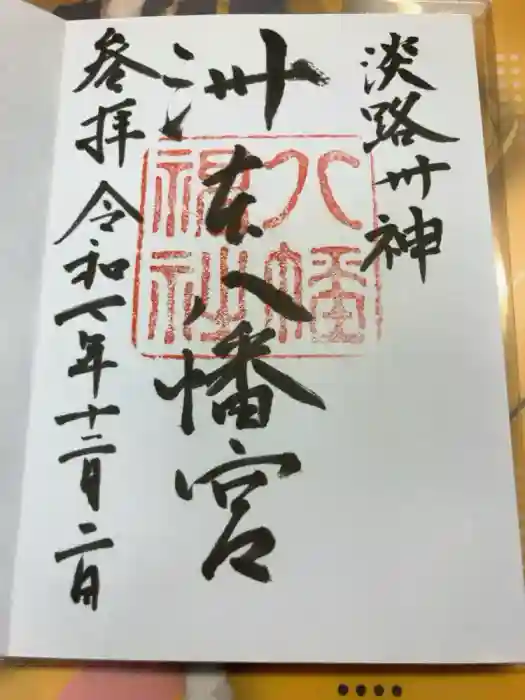 淡路卅神
洲本八幡宮
八幡
参拝 令和七年十二月二日